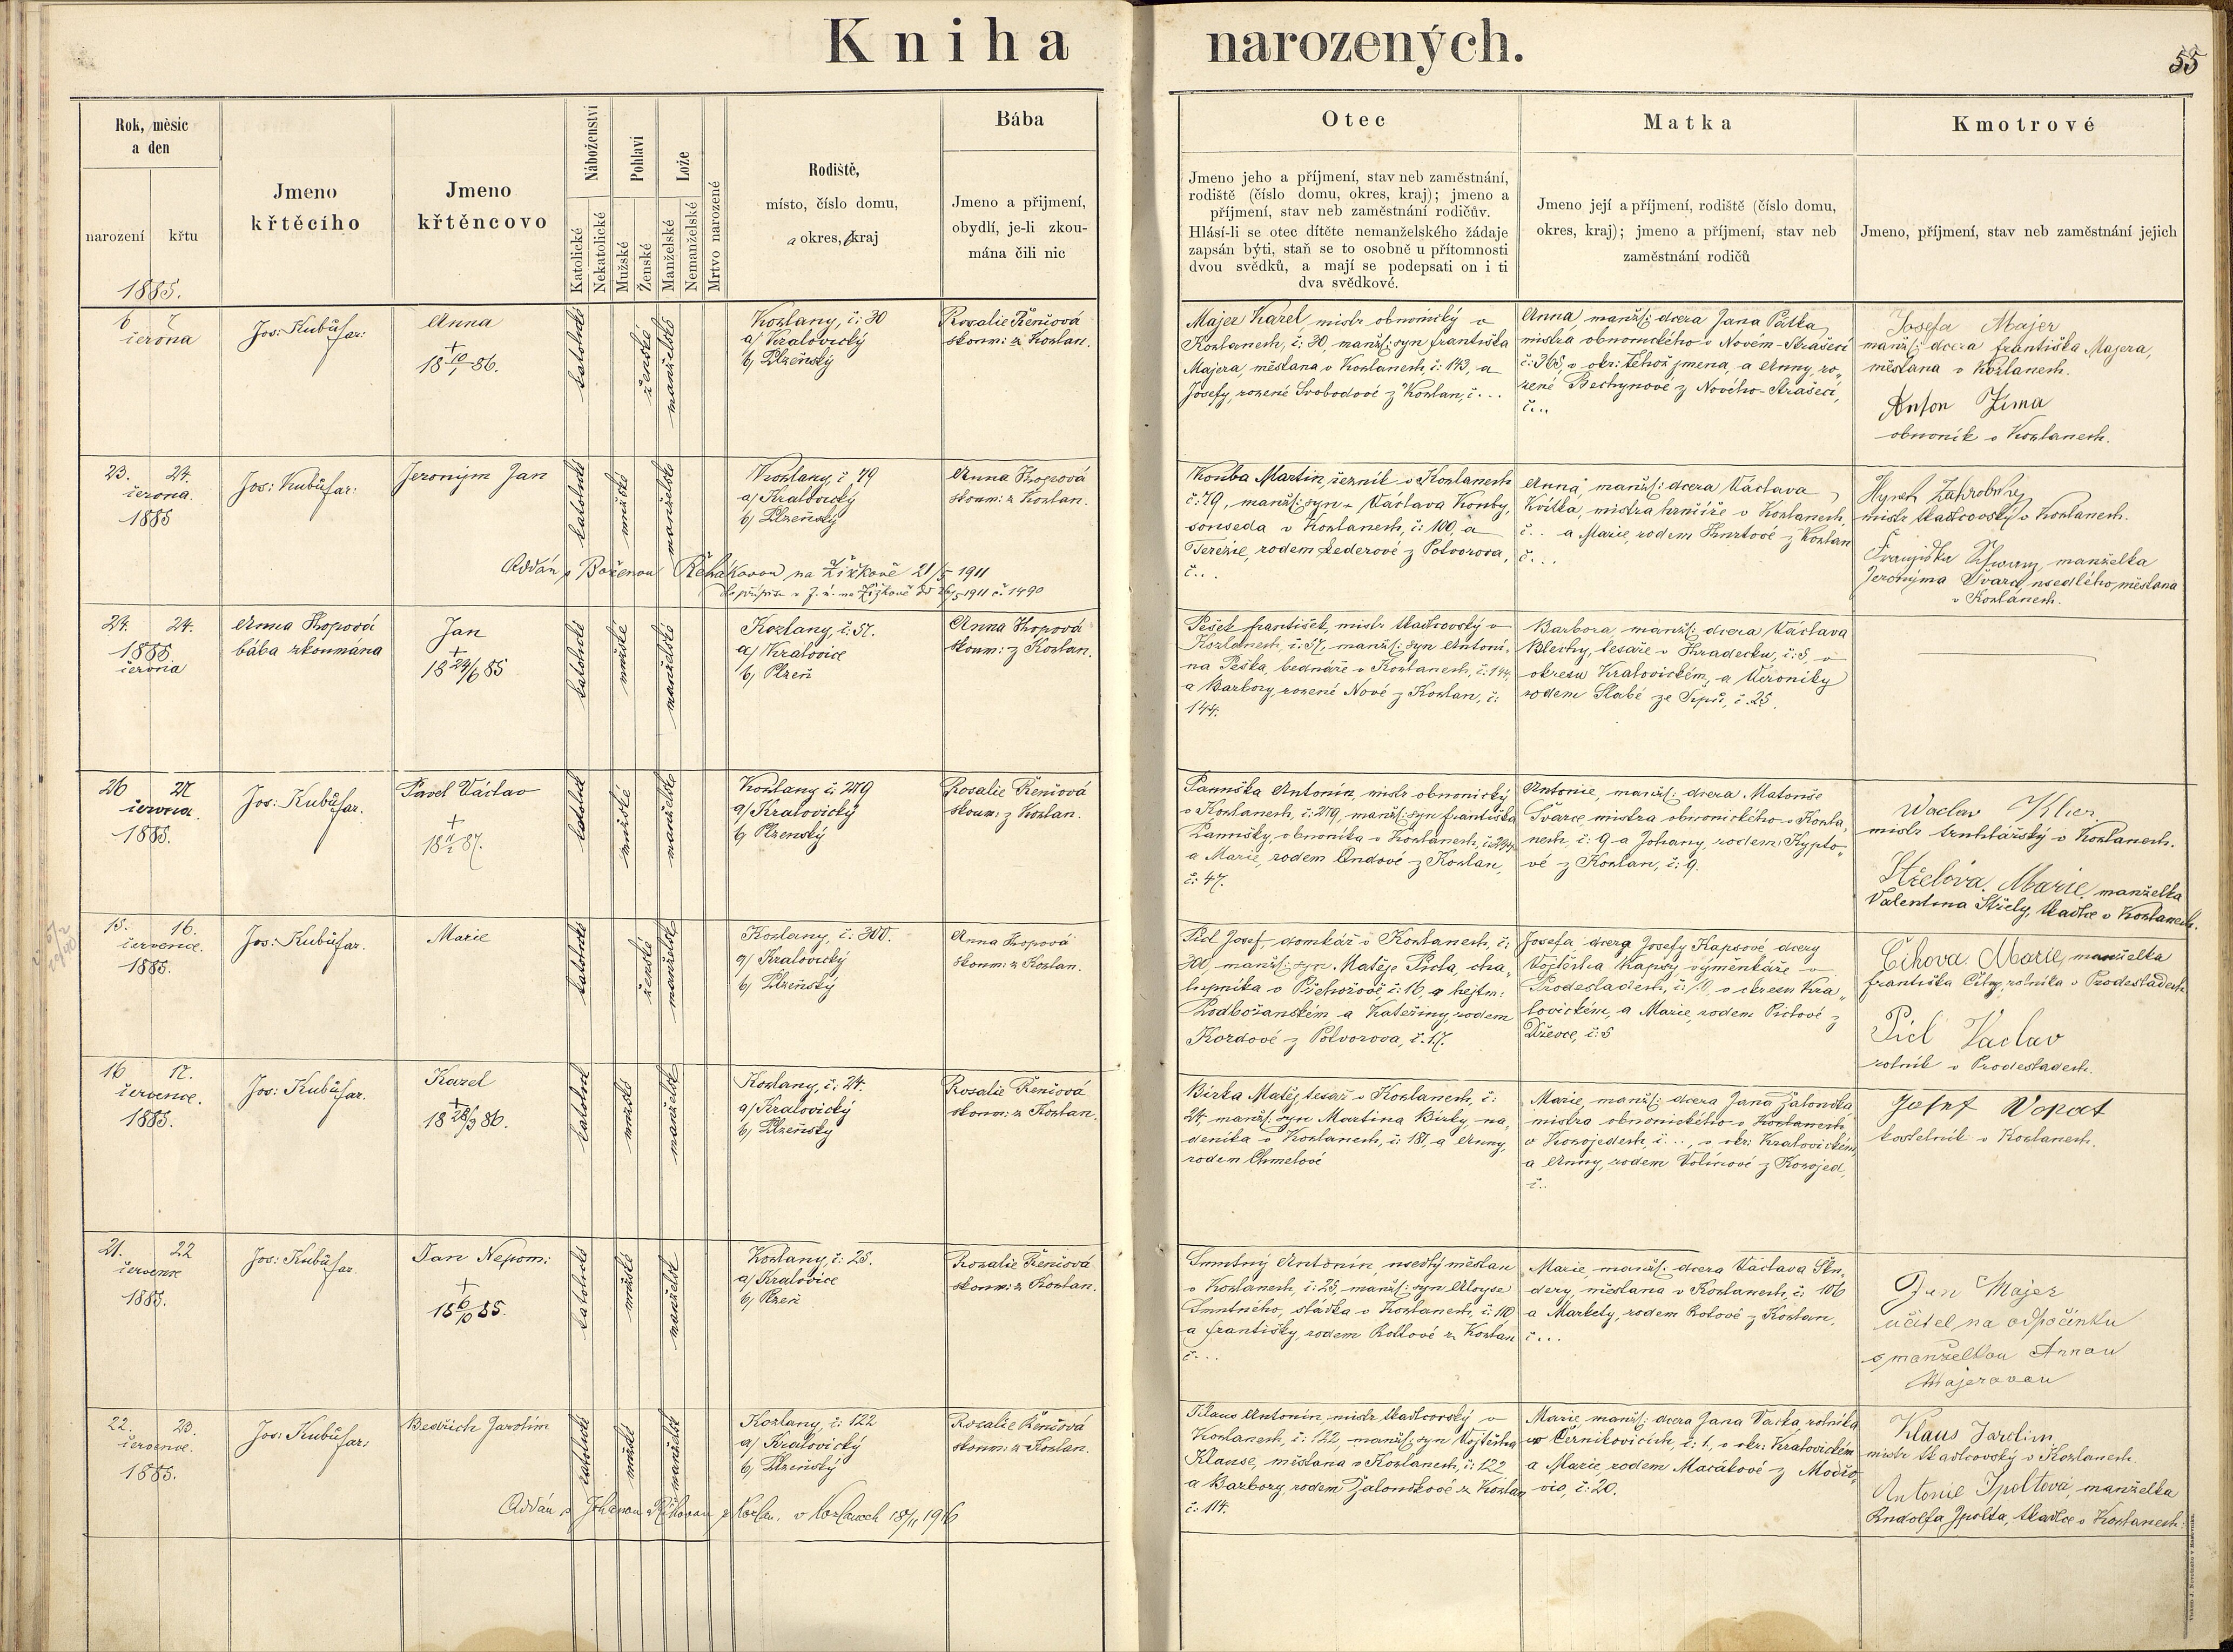 Kniha narozených.
55
Rok, měsíc
a den
narození
křtu
1885.
Jmeno
křtěcího
Jmeno
křtěncovo
Náboženství
Katolické
Nekatolické
Pohlaví
Mužské
Ženské
Lože
Manželské
Nemanželské
Mrtvo narozené
Rodiště,
místo, číslo domu,
a okres, kraj
Bába
Jmeno a příjmení,
obydlí, je-li zkou-
mána čili nic
Otec
Jmeno jeho a příjmení, stav neb zaměstnání,
rodiště (číslo domu, okres, kraj); jmeno a
příjmení, stav neb zaměstnání rodičův.
Hlásí-li se otec dítěte nemanželského žádaje
zapsán býti, staň se to osobně u přítomnosti
dvou svědků, a mají se podepsati on i ti
dva svědkové.
Matka
Jmeno její a příjmení, rodiště (číslo domu,
okres, kraj); jmeno a příjmení, stav neb
zaměstnání rodičů
Kmotrové
Jmeno, příjmení, stav neb zaměstnání jejich
6 7
června
Jos: Kubů, far:
Anna
+
18 10/1 86.
katolické
ženské
manželské
Kozlany, č: 30
a/ Kralovický
b/ Plzeňský
Rosalie Řenčová
skoum: z Kozlan.
Majer Karel, mistr obuvnický v
Kozlanech, č: 30, manžl: syn Františka
Majera, měšťana v Kozlanech, č: 143, a
Josefy, rozené Svobodové z Kozlan, č...
Anna, manžl: dcera Jana Pátka,
mistra obuvnického v Novém-Strašecí
č: 368, v okr: téhož jmena, a Anny, ro-
zené Bechynové z Nového-Strašecí,
č..
Josefa Majer
manžl: dcera Františka Majera,
měšťana v Kozlanech.
Anton Zima
obuvník v Kozlanech.
23. 24.
června.
1885
Jos: Kubů, far:
Jeronym Jan
katolické
mužské
manželské
Kozlany, č 79
a/ Kralovický
b/ Plzeňský
Anna Kopová
skoum: z Kozlan.
Oddán s Boženou Řehákovou na Žižkově 21/5 1911
Kouba Martin, řezník v Kozlanech
č: 79, manžl: syn + Václava Kouby,
souseda v Kozlanech, č: 100, a
Terezie, rodem Lederové z Potvorova,
č...
Anna, manžl: dcera Václava
Kvítka, mistra hrnčíře v Kozlanech,
č.. a Marie, rodem Hurtové z Kozlan
č...
Hynek
mistr tkadlcovský v Kozlanech.
Františka Schwarz, manželka
Jeronýma Švarce usedlého měšťana
v Kozlanech.
24. 24.
1885.
června
Anna Kopová
bába zkoumána
Jan
+
18 24/6 85
katolické
mužské
manželské
Kozlany, č: 57.
a/ Kralovice
b/ Plzeň
Anna Kopová
skoum: z Kozlan.
Pešek František, mistr tkadlcovský v
Kozlanech, č: 57, manžl: syn Antoní-
na Peška, bednáře v Kozlanech, č: 144.
a Barbory, rozené Nové z Kozlan, č:
144.
Barbora, manžl: dcera Václava
Blechy, tesaře v Hradecku, č: 5, v
okresu Kralovickém, a Veroniky
rodem Slabé ze č. 25.
26 27
června.
1885.
Jos: Kubů, far.
Pavel Václav
+
katolické
mužské
manželské
Kozlany č. 279
a/ Kralovický
b/ Plzenský
Rosalie Řenčová
skoum: z Kozlan.
Pauuška Antonín, mistr obuvnický
v Kozlanech, č: 279, manžl: syn Františka
Pauušky, obuvníka v Kozlanech, č: 294
a Marie, rodem Ondové z Kozlan,
č: 47.
Antonie, manžl: dcera Matouše
Švarce, mistra obuvnického v Kozla-
nech, č: 9 a Johany, rodem Krypto-
vé z Kozlan, č: 9.
Waclaw Klier
mistr truhlářský v Kozlanech.
Střelova Marie, manželka
Valentina Střely, tkadlce v Kozlanech.
15. 16.
července.
1885.
Jos: Kubů, far.
Marie
katolické
ženské
manželské
Kozlany, č: 300.
a/ Kralovický
b/ Plzeňský
Anna Kopová
skoum: z Kozlan.
Picl Josef, domkář v Kozlanech, č:
300, manžl: syn Matěje Picla, cha-
lupníka v Přehořově, č: 16, v hejtm:
Podbořanském a Kateřiny, rodem
Kordové z Potvorova, č. 17.
Josefa dcera Josefy Kapsové dcery
Vojtěcha Kapsy výměnkáře v
Brodesladech, č: 10, v okresu Kra-
lovickém, a Marie, rodem Piclové z
Dřevce, č: 5
Čihova Marie, manželka
Františka Čihy, rolníka v Brodesladech
Picl Václav
rolník v Brodesladech.
16 17.
července.
1885.
Jos: Kubů, far.
Karel
+
18 28/3 86.
katolické
mužské
manželské
Kozlany, č: 24.
a/ Kralovický
b/ Plzeňský
Rosalie Řenčová
skoum: z Kozlan.
Birka Matěj, tesař v Kozlanech, č:
24, manžl: syn Martina Birky, ná-
deníka v Kozlanech, č: 187, a Anny,
rodem Chmelové
Marie, manžl: dcera Jana Žaloudka,
mistra obuvnického v Kozlanech
v Kozojedech, č .., v okr: Kralovickém
a Anny, rodem Volínové z Kozojed,
č..
Josef Vopat
kostelník v Kozlanech.
21. 22
července
1885.
Jos: Kubů, far
Jan Nepom:
+
18 6/10 85.
katolické
mužské
manželské
Kozlany, č: 25.
a/ Kralovice
b/ Plzeň
Rosalie Řenčová
skoum: z Kozlan.
Smutný Antonín usedlý měšťan
v Kozlanech, č: 25, manžl: syn Aloyse
Smutného, sládka v Kozlanech, č: 110
a Františky, rodem Rottové z Kozlan
č...
Marie, manžl: dcera Václava Štu-
dery, měšťana v Kozlanech, č: 106
a Markety, rodem Rotové z Kozlan,
č...
Jan Majer
učitel na odpočinku
s manželkou Annau
Majerovau
22. 23.
července.
1885.
Jos: Kubů, far:
Bedřich Jarolím
katolické
mužské
manželské
Kozlany, č: 122
a/ Kralovický
b/ Plzeňský
Rosalie Řenčová
skoum: z Kozlan.
Oddán s Johanou z Kozlan v Kozlanech 18/11 1916
Klaus Antonín, mistr tkadlcovský v
Kozlanech, č: 122, manžl: syn Vojtěcha
Klause, měšťana v Kozlanech, č: 122
a Barbory, rodem Žaloudkové z Kozlan
č: 114.
Marie, manžl: dcera Jana Vacka rolníka
v Černíkovicích, č: 1, v okr: Kralovickém
a Marie, rodem Macákové z Modřo-
vic, č: 20.
Klaus Jarolim,
mistr tkadlcovský v Kozlanech.
Antonie Ipoltová, manželka
Rudolfa Ipolta, tkadlce v Kozlanech.